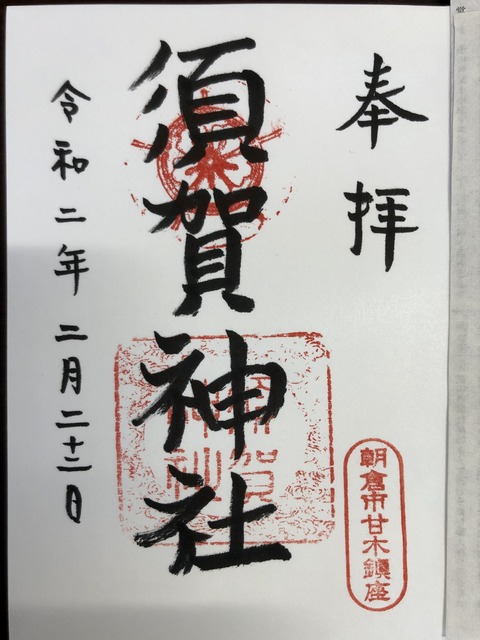 奉拝
朝倉市甘木鎮座
須賀神社
令和二年二月二十二日